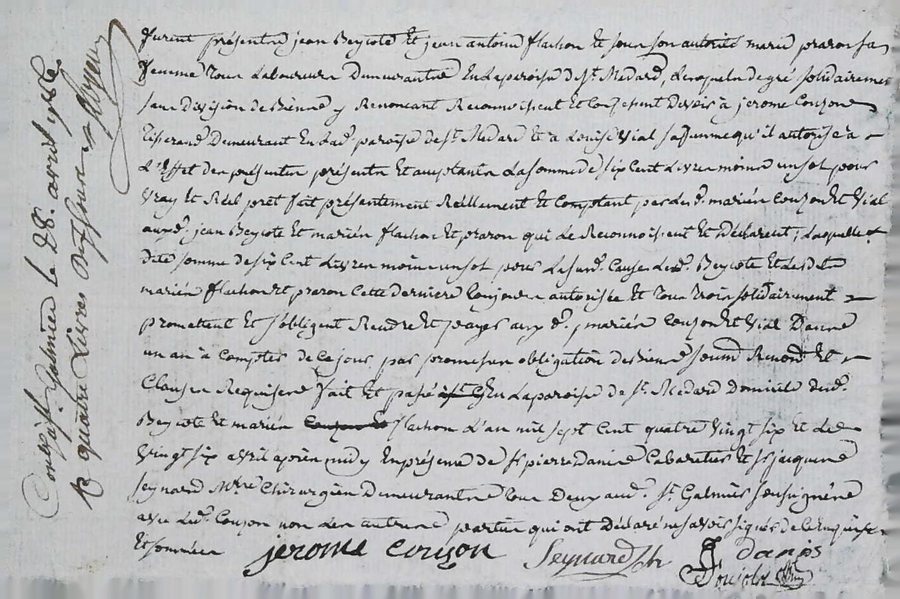 furent présentre jean Beyssote Et jean antoine flachon Et sous son autorité marie prazon sa
femme Tour Laboureurs Demeurantre En La paroise de St. Medard, Lesquels de gré solidairement
sans Division de Bienne y Renoncant Reconnoissent Et Confessent Devoir à jerome Couzon
Tisserand Demeurant En Lad. paroise de St. Medard Et a Louise Vial sa femme qu'il autorise à
L'Effet des présentre présentre Et acceptante La somme de six Cent Livres moins un sol pour
Vray Et Réel prêt fait présentement Réellement Et Comptant par Lesd. mariés Couzon Et Vial
auxd. jean Beyssote Et mariés flachon Et prazon qui Le Reconnoissent Et Déclarent, Laquelle
Dite somme de six Cent Livres moins un sol pour La susd. Cause Led. Beyssote Et Lesd.
mariés flachon Et prazon Cette derniere Toujours autorisée Et Tour Trois solidairement
promettent Et s'obligent Rendre Et payer auxd. mariés Couzon Et Vial Dans
un an à Compter de Ce jour par promesse obligation de Biens Renond. Et
Clauses Requises fait Et passé En La paroise de St. Medard Domicile dud.
Beyssote Et mariés flachon L'an mil sept Cent quatre Vingt six Et Le
Vingt six avril après midy En présence de Sr pierre Danis Cabaretier Et Sr jacques
Seynard Mtre Chirurgien Demeurantre Tour Deux aud. St. Galmier soussignés
avec Led. Couzon non Les autres partier qui ont Déclaré ne savoir signer de Ce Enquise
Et sommées
jerome couzon Seynard danis
Controllé à St. Galmier Le 28. avril 1786
R quatre Livres Dix sour